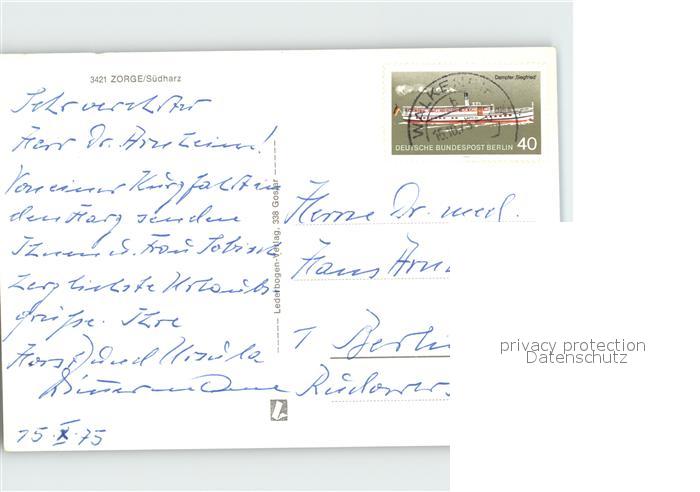 3421 ZORGE/Südharz
Sehr verehrter
Herr Dr. Arnheim!
Von einer Kurzfahrt in
den Harz senden
Ihnen u. Frau
herzlichste Urlaubs
grüße. Ihre
Horst und Ursula
15. X. 75
Lederbogen-Verlag, 338 Goslar
Dampfer „Siegfried"
WALKE
15.10.75
DEUTSCHE BUNDESPOST BERLIN 40
Herrn Dr. med.
Hans Arn
1 Berlin
Rudower
privacy protection
Datenschutz